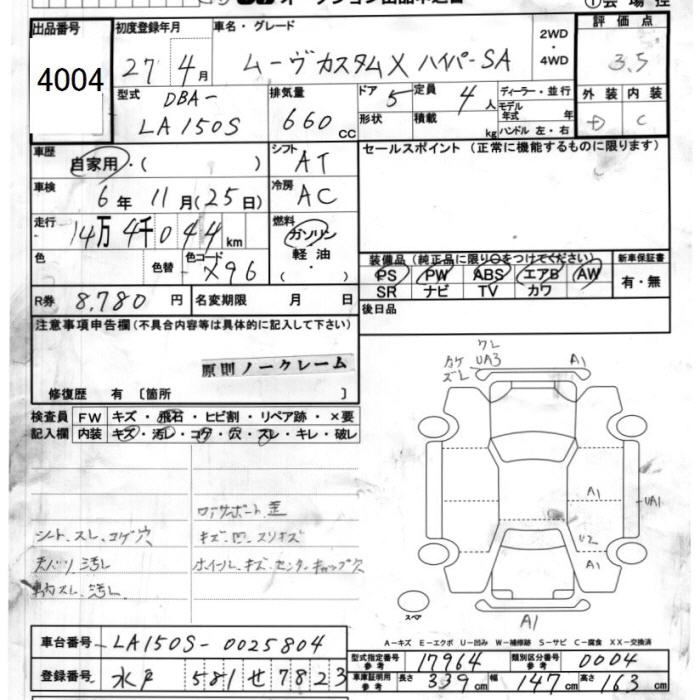 出品番号 初度登録年月 車名・グレード 2WD・4WD 評価点
4004 27年 4月 ムーヴカスタムX ハイパーSA 3.5
型式 DBA- LA150S 排気量 660cc ドア 5 定員 4人 ディーラー・並行 外装 内装
形状 積載 kg モデル年式 年 ハンドル 左・右 D C
車歴 自家用・( ) シフト AT セールスポイント(正常に機能するものに限ります)
車検 6年 11月(25日) 冷房 AC
走行 14万 4千 044km 燃料 ガソリン 軽油 ( ・ )
色 色替 色コード X96 装備品(純正品に限り○をつけてください) 新車保証書
PS PW ABS エアB AW 有・無
SR ナビ TV カワ
R券 8,780円 名変期限 月 日 後日品
注意事項申告欄(不具合内容等は具体的に記入して下さい)
原則ノークレーム
修復歴 有 〔箇所 〕
検査員 FW キズ・飛石・ヒビ割・リペア跡・×要
記入欄 内装 キズ・汚レ・コゲ・穴・スレ・キレ・破レ
シート、スレ、コゲ穴
天バリ汚レ
キズ、凹、スリキズ
ホイール、キズ、センターキャップ穴
ワレ
カケ UA3 A1
ズレ
A1
UA1
U2
A1
スペア
A1
A-キズ E-エクボ U-凹み W-補修跡 S-サビ C-腐食 XX-交換済
車台番号 LA150S-0025804
登録番号 水戸 581 せ 7823
型式指定番号 参考 17964 類別区分番号 参考 0004
車庫証明用 参考 長さ 339cm 幅 147cm 高さ 163cm